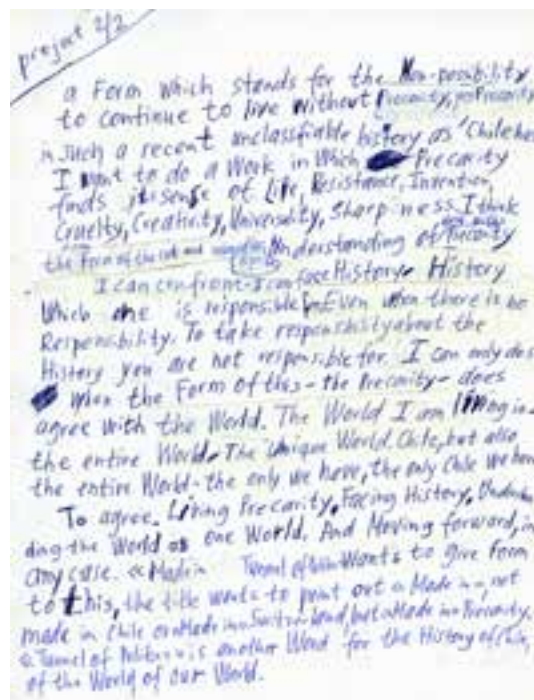 project 2/2
a Form which stands for the Non-possibility
to continue to live without Precarity,
in such a recent unclassfiable history as 'Chile has
I want to do a Work in Which Precarity
finds its sense of Life, Resistance, Invention,
Cruelty, Creativity, Universality, Sharpness. I think
the Form of the cut and Understanding of Precarity
I can confront - I can face History - History
Which one is responsible Even when there is no
Responsibility. To take responsibility about the
History you are not responsible for. I can only do
When the Form of this - the Precarity - does
agree with the World. The World I am living in -
the entire World - The Unique World. Chile, but also
the entire World - the only we have, the only Chile we have
To agree. Living Precarity, Facing History,
ding the World as one World. And Moving forward, in
any case. « Made in Tunnel of Wants to give form
to this, the title wants to point out a Made in -, not
made in Chile or Made in Switzerland, but a Made in Precarity.
Tunnel of is another Word for the History of Chile,
of the World of our World.